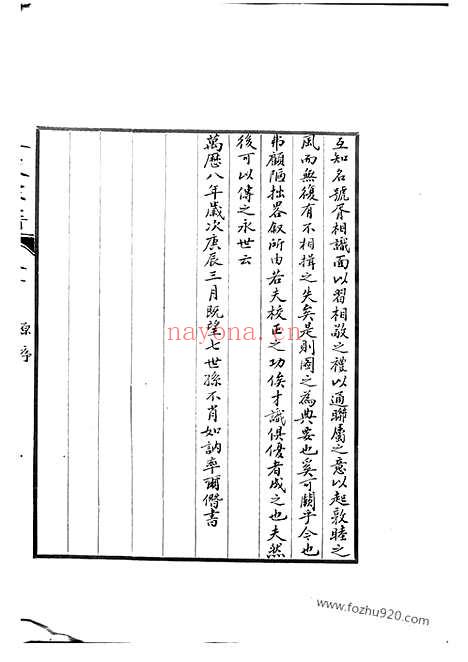 互知名號胥相識面以習相敬之禮以通聯屬之意以起敦睦之
風而無復有不相揖之失矣是則圖之為典要也奚可闕乎今也
弗顧陋拙畧叙所由若夫校正之功俟才識俱優者成之也夫然
後可以傳之永世云
萬歷八年歲次庚辰三月既望七世孫不肖如訥率爾僭書
原序
nayona.cn
www.fozhu920.com